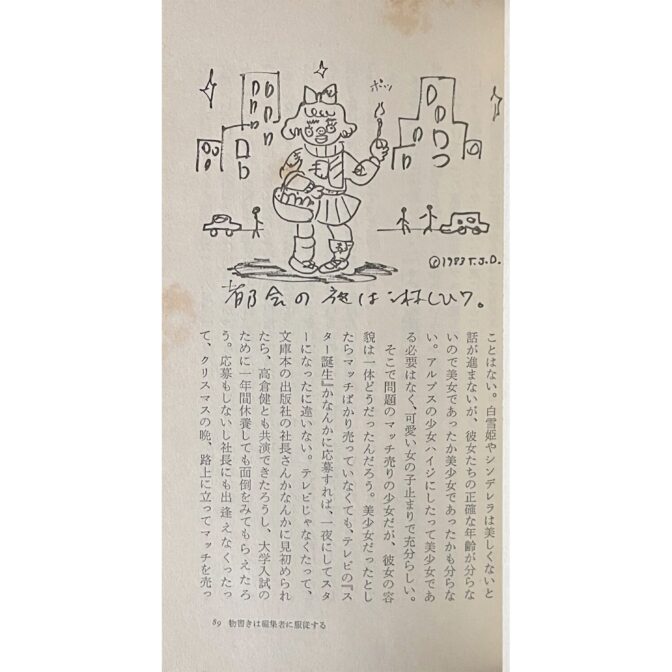 ポッ
©1983 T.J.D.
都会の夜は淋しひ？。
ことはない。白雪姫やシンデレラは美しくないと
話が進まないが、彼女たちの正確な年齢が分らな
いので美女であったか美少女であったかも分らな
い。アルプスの少女ハイジにしたって美少女であ
る必要はなく、可愛い女の子止まりで充分らしい。
そこで問題のマッチ売りの少女だが、彼女の容
貌は一体どうだったんだろう。美少女だったとし
たらマッチばかり売っていなくても、テレビの『ス
ター誕生』かなんかに応募すれば、一夜にしてスタ
ーになったに違いない。テレビじゃなくたって、
文庫本の出版社の社長さんかなんかに見初められ
たら、高倉健とも共演できたろうし、大学入試の
ために一年間休養しても面倒をみてもらえたろ
う。応募もしないし社長にも出逢えなくたっ
て、クリスマスの晩、路上に立ってマッチを売っ
89 物書きは編集者に服従する